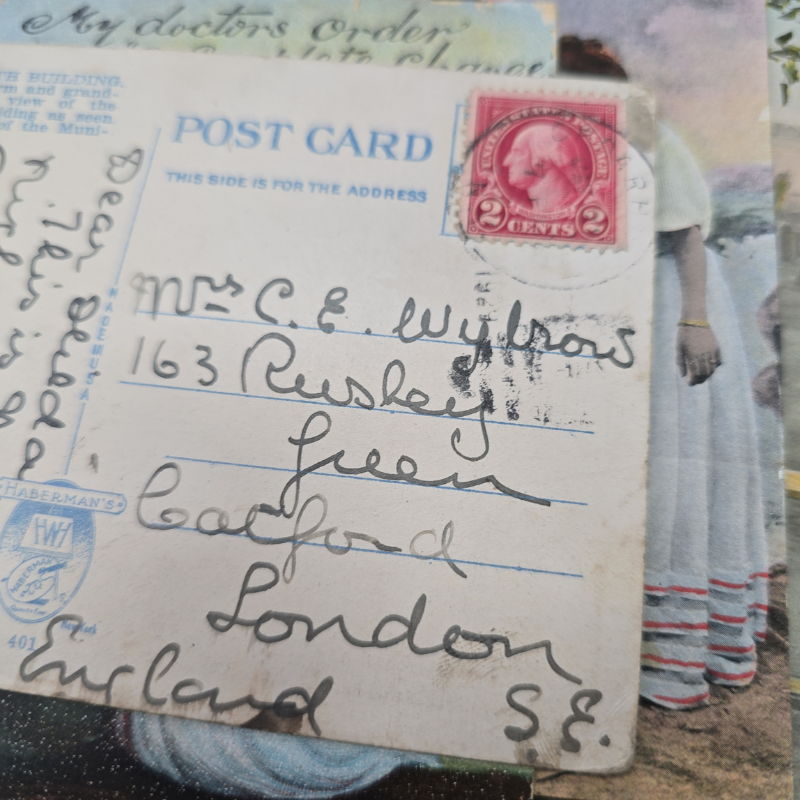 My doctors order
TH BUILDING.
rm and grand-
view of the
lding as seen
of the Muni-
POST CARD
THIS SIDE IS FOR THE ADDRESS
UNITED STATES POSTAGE
2 CENTS 2
Dear
This is
MADE IN U S A
Mrs C. E. Wybrow
163 Rushey
Green
Catford
London
S.E.
England
HABERMAN'S
HWH
401
New York